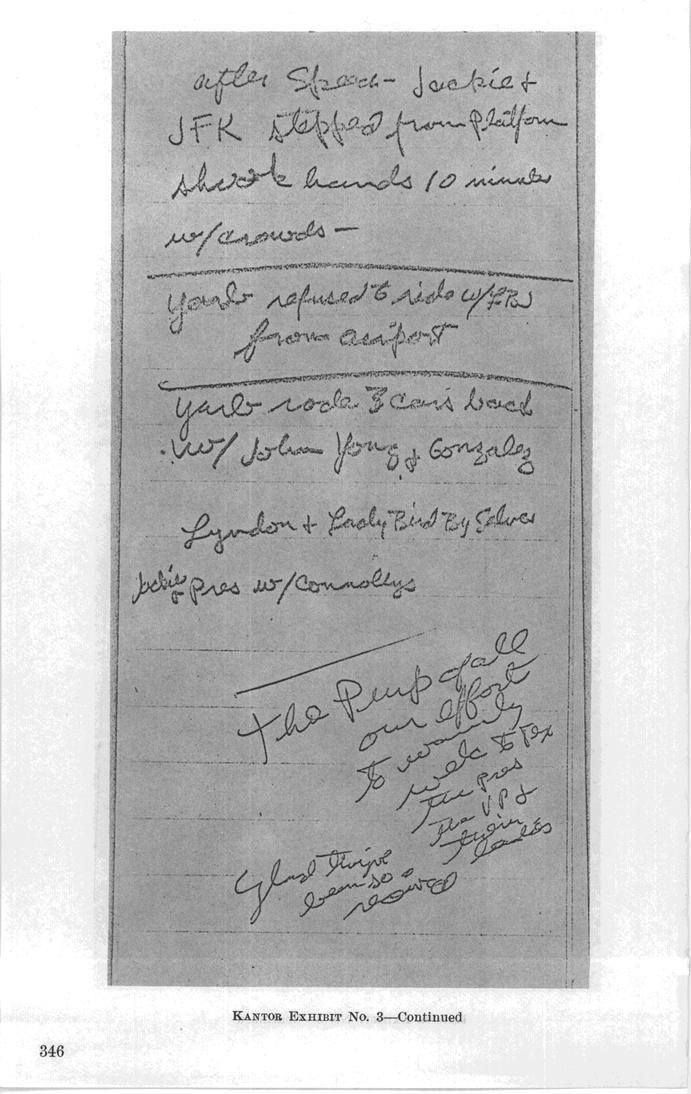 after Speech - Jackie &
JFK stepped from Platform
shook hands 10 minutes
w/crowds —
Yarb refused to ride w/
from airport
Yarb rode 3 cars back
w/ John Yong & Gonzalez
Lyndon & Lady Bird By Selves
Jackie & Pres w/Connollys
the Purp of all
our effort
to warmly
welc to Tex
the Pres
the VP &
their
ladies
Glad
been so
received
KANTOR EXHIBIT No. 3—Continued
346